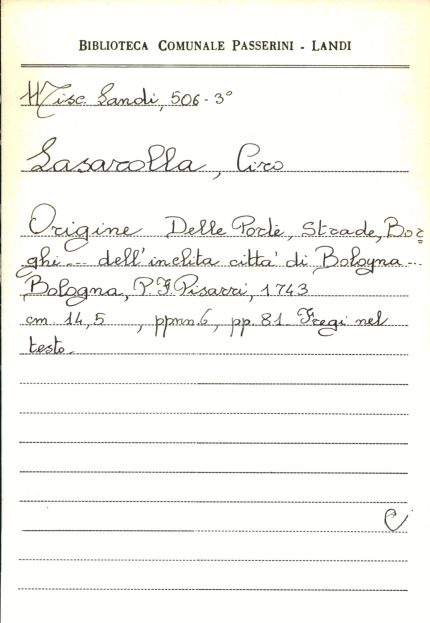 BIBLIOTECA COMUNALE PASSERINI - LANDI
Misc. Landi, 506-3°
Lasarolla, Ciro
Origine Delle Porte, Strade, Bor=
ghi... dell'inclita città di Bologna...
Bologna, P. F. Pisarri, 1743
cm 14,5 , ppnn.6, pp. 81. Fregi nel
testo.
C